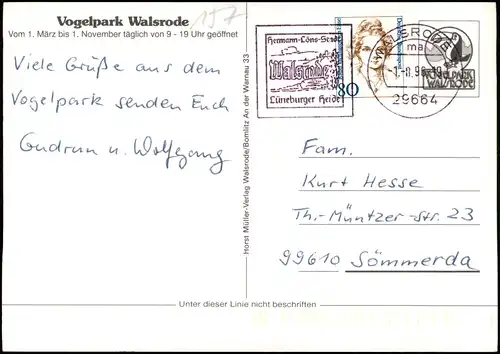 Vogelpark Walsrode
157
Vom 1. März bis 1. November täglich von 9 - 19 Uhr geöffnet
Viele Grüße aus dem
Vogelpark senden Euch
Gudrun u. Wolfgang
Horst Müller-Verlag Walsrode/Bomlitz An der Warnau 33
Hermann-Löns-Stadt
Walsrode
Lüneburger Heide
80
Deutsche Bundespost
WALSRODE
ma
29664
VOGELPARK
WALSRODE
Fam.
Kurt Hesse
Th.-Müntzer-Str. 23
99610 Sömmerda
Unter dieser Linie nicht beschriften